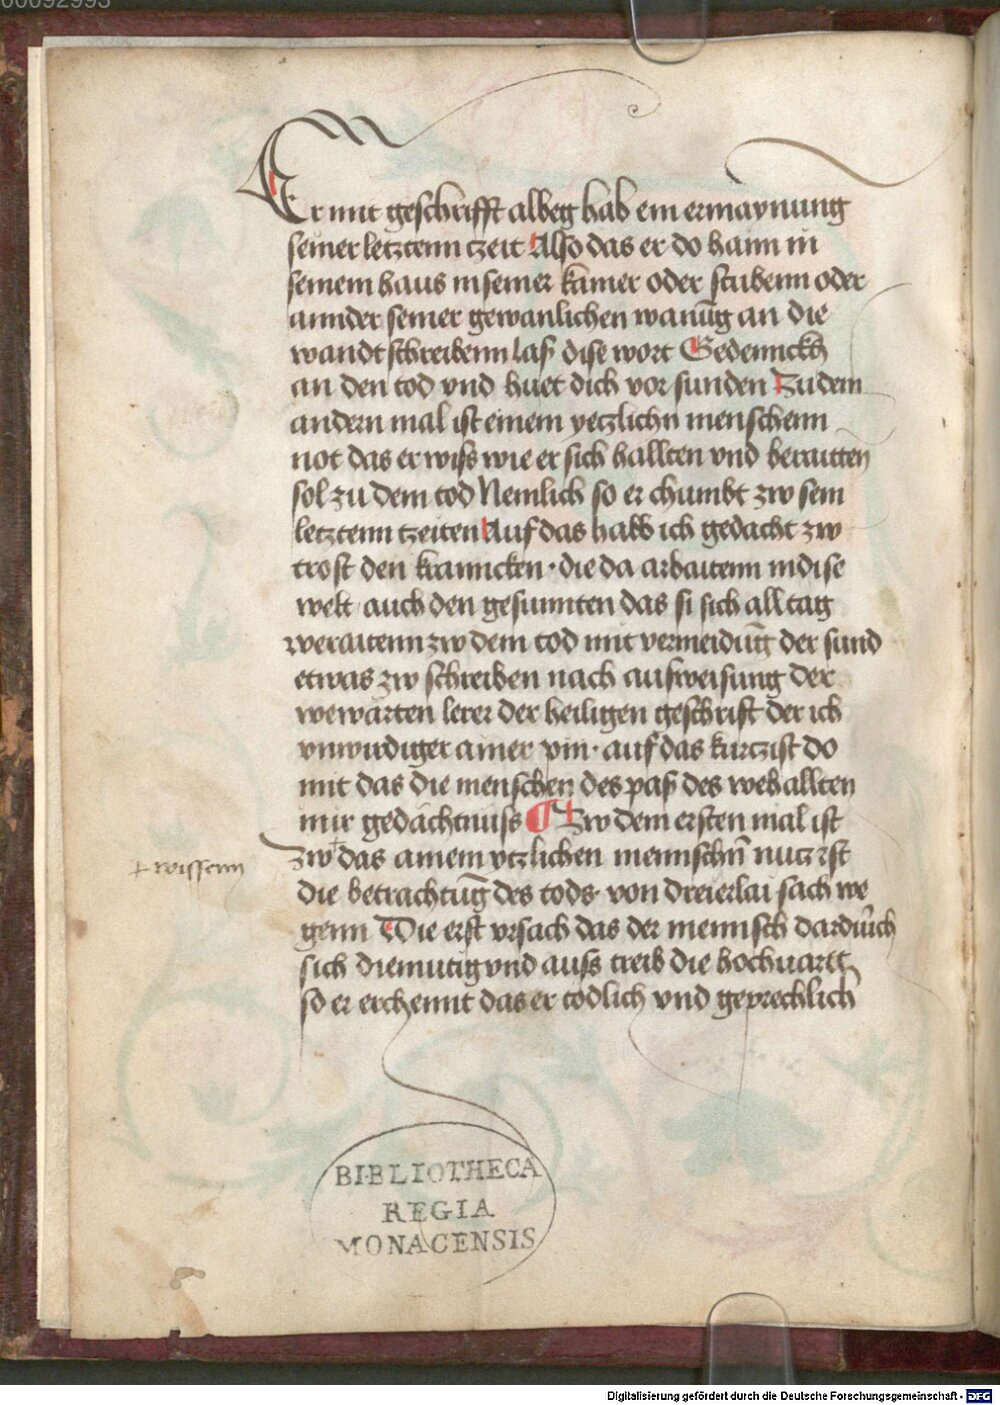 00092993
Er mit geschrifft albeg hab ein ermaynung
seiner letztenn tzeit Also das er do haim in
seinem haus in seiner kamer oder stubenn oder
annder seiner gewanlichen wanūg an die
wandt schreibenn lass dise wort Gedennckh
an den tod vnd huet dich vor sunden Zu dem
andern mal ist einem yetzlichn menschenn
not das er wiss wie er sich hallten vnd beraitten
sol zu dem tod Nemlich so er chumbt zw sein
letztenn tzeiten Auf das hab ich gedacht zw
trost den kranncken · die da arbaitenn in dise
welt auch den gesunnten das si sich all tag
weraitenn zw dem tod mit vermeidūg der sund
etwas zw schreiben nach ausweisung der
wewärten lerer der heiligen geschrift der ich
vnwirdiger ainer pin · auf das kurczist do
mit das die menschen des pas des wehallten
mir gedächtnuss ¶ Zw dem ersten mal ist
zw das ainem ytzlichen mennschn̄ nucz ist
+ wissenn
die betrachtūg des tods · von dreierlai sach we
genn Die erst vrsach das der mennsch dardurch
sich diemutig vnd auss treib die hochuartt
so er erchennt das er todlich vnd geprechlich
BIBLIOTHECA
REGIA
MONACENSIS
Digitalisierung gefördert durch die Deutsche Forschungsgemeinschaft - DFG